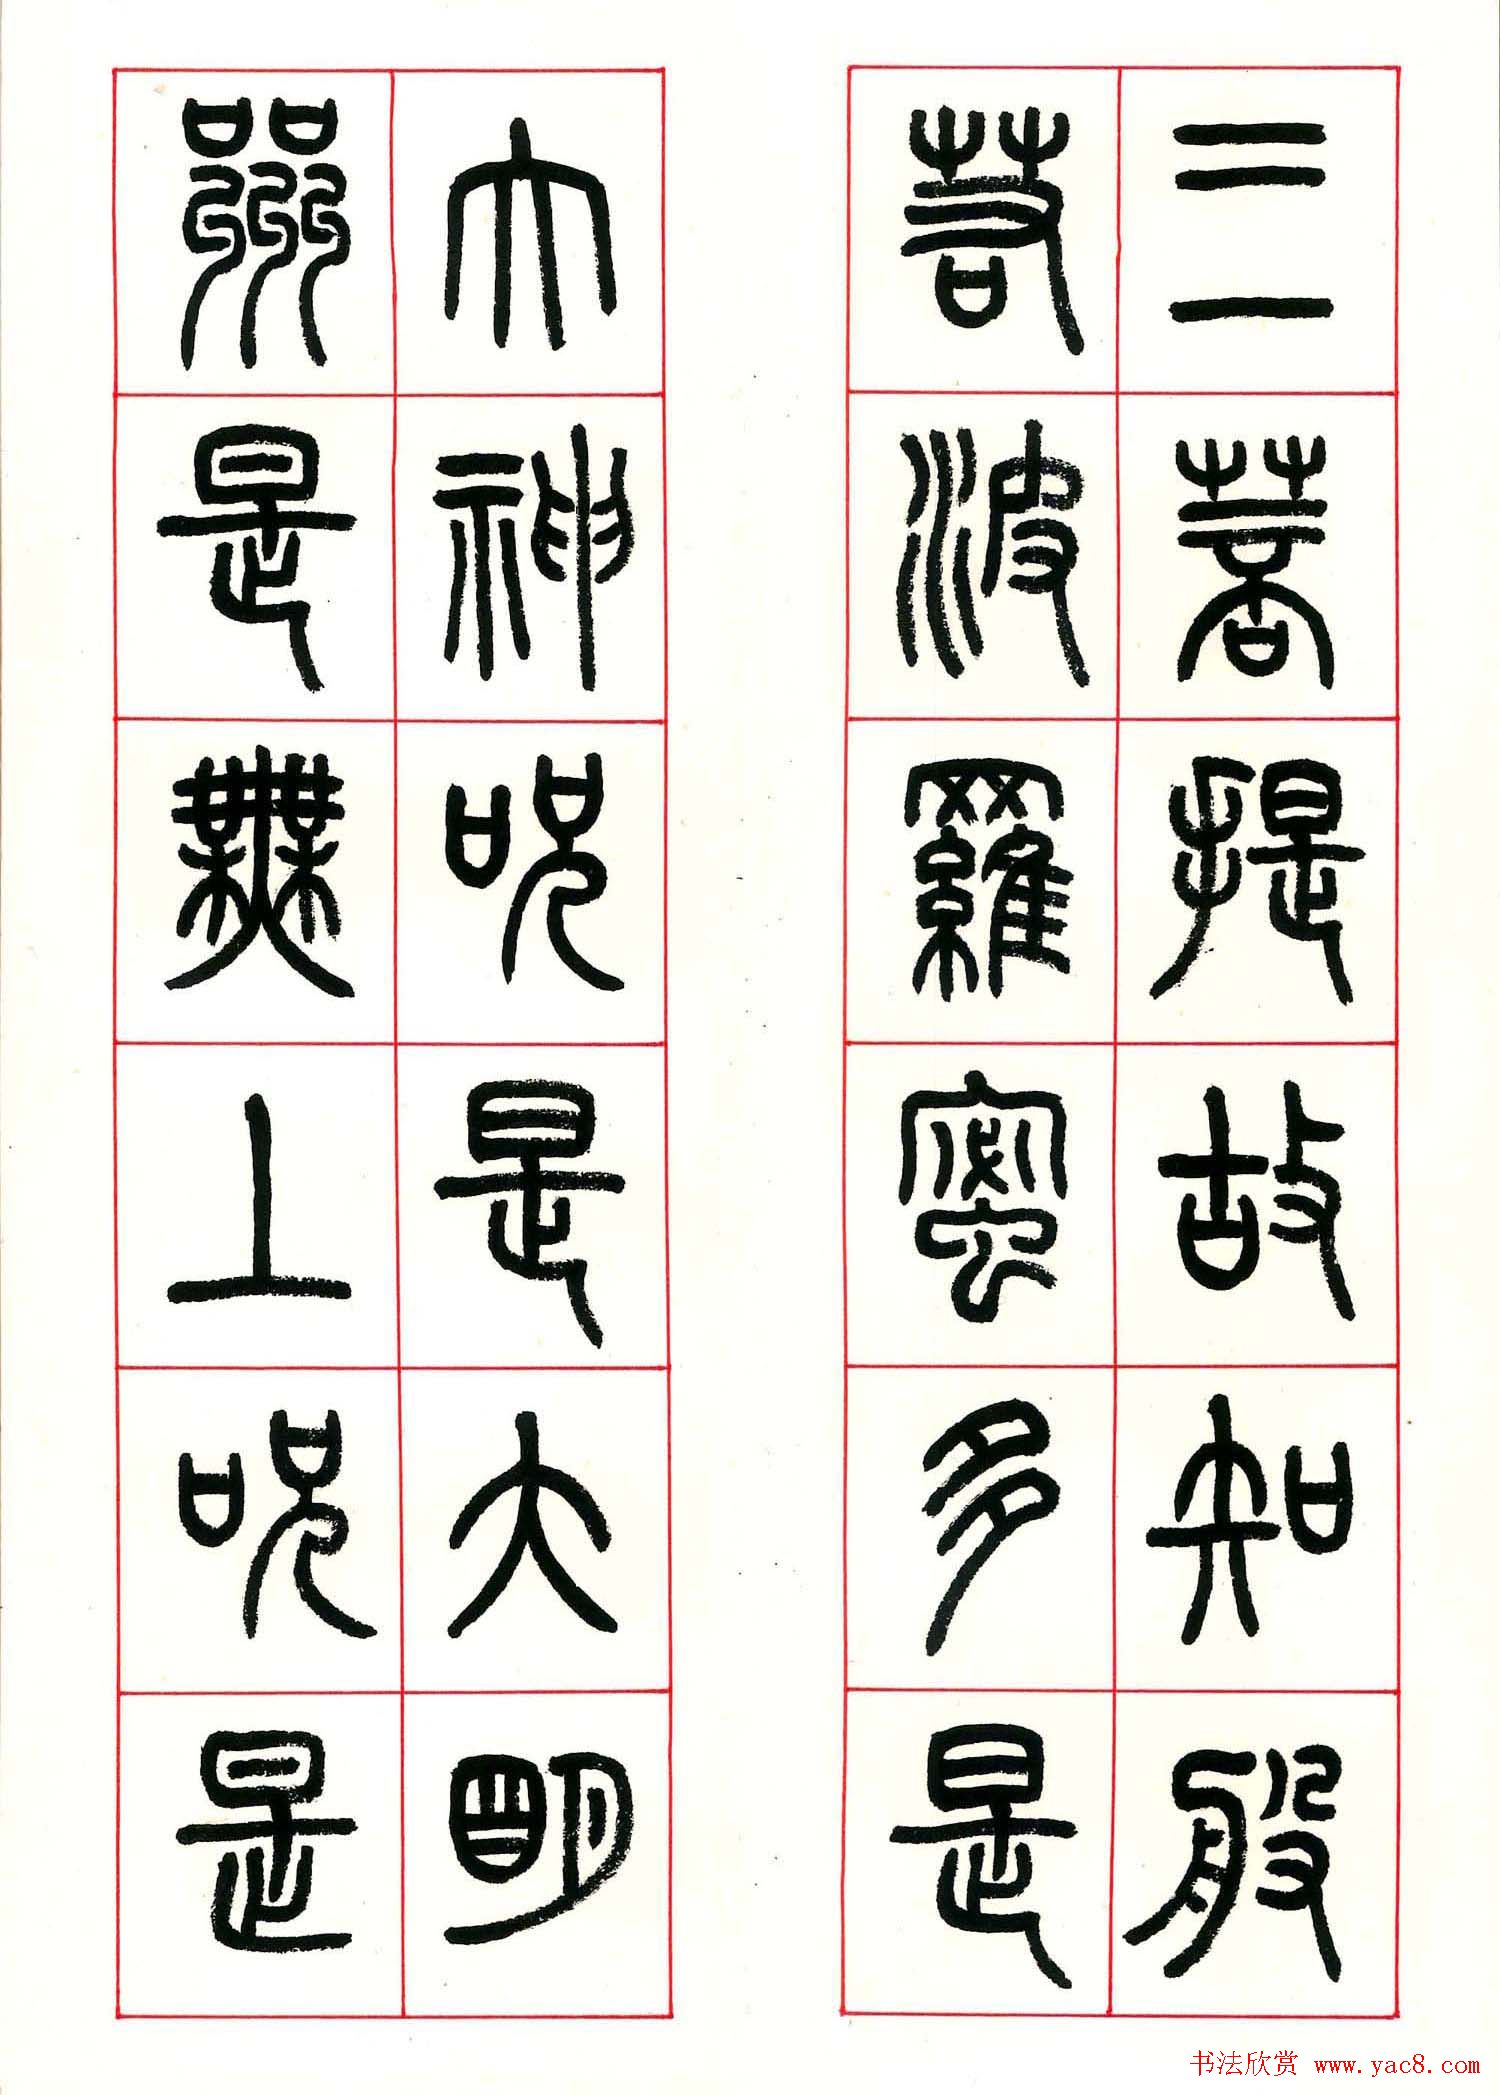 三菩提故知般
若波羅蜜多是
大神呪是大明
咒是無上呪是
书法欣赏 www.yac8.com